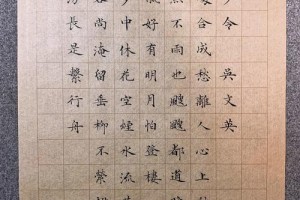 令吳文英
合成愁離人心上
不雨也颼颼都道
好有明月怕登樓
中休花空煙水流
尚淹留垂柳不縈
長是繫行舟